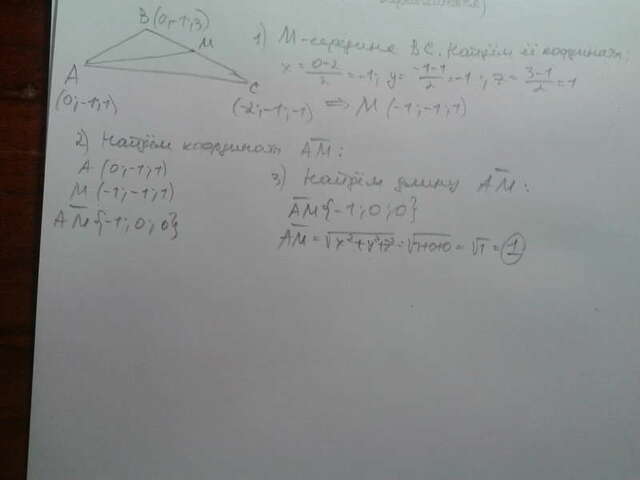 B(0;-1;3)
M
A
C
(0;-1;1)
(-2;-1;-1)
1) M-середина BC. Найдём её координаты:
x = 0-2/2 = -1; y = -1-1/2 = -1; z = 3-1/2 = 1
⇒ M (-1;-1;1)
2) Найдём координаты AM:
A (0;-1;1)
M (-1;-1;1)
AM{-1;0;0}
3) Найдём длину AM:
AM{-1;0;0}
AM = √x²+y²+z² = √1+0+0 = √1 = 1